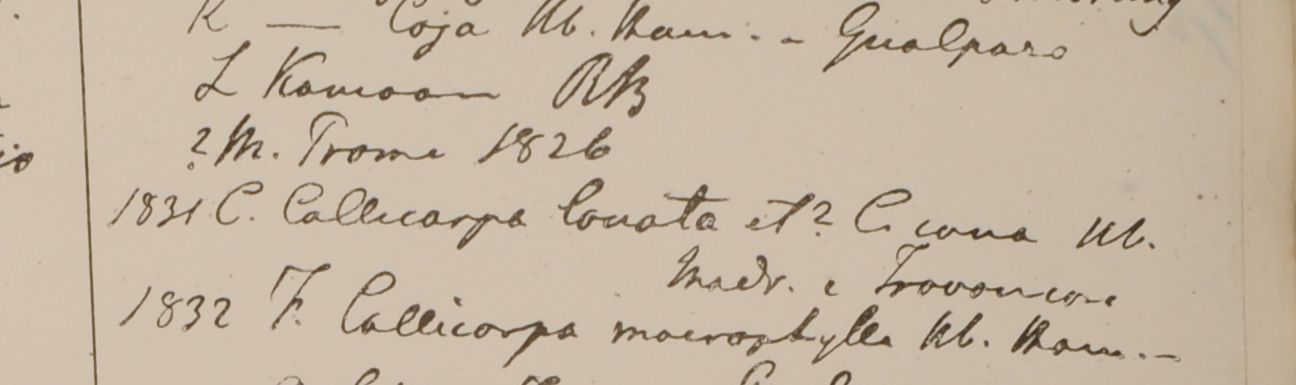 K — Coja Hb. Ham. - Gualpara
L Kamaon RB
? M. Prome 1826
1831 C. Callicarpa lanata et? C. cana Hb.
Madr. e Travancore
1832 F. Callicarpa macrophylla Hb. Ham. -